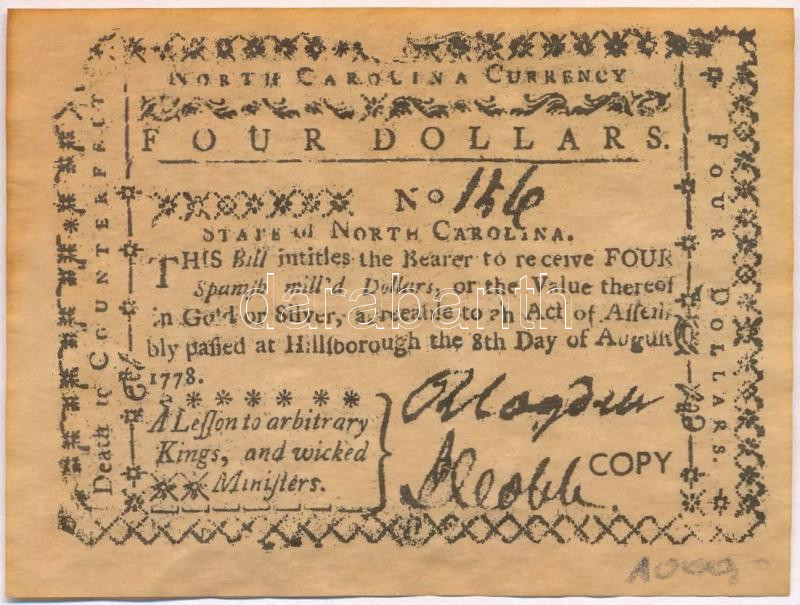 NORTH CAROLINA CURRENCY
FOUR DOLLARS.
No 156
STATE of NORTH CAROLINA.
THIS Bill intitles the Bearer to receive FOUR
Spaniſh mill'd Dollars, or the Value thereof
in Gold or Silver, agreeable to an Act of Aſſem-
bly paſſed at Hillſborough the 8th Day of Auguſt
1778.
A Leſſon to arbitrary
Kings, and wicked
Miniſters.
COPY
Death to COUNTERFEIT
FOUR DOLLARS.
darabanth